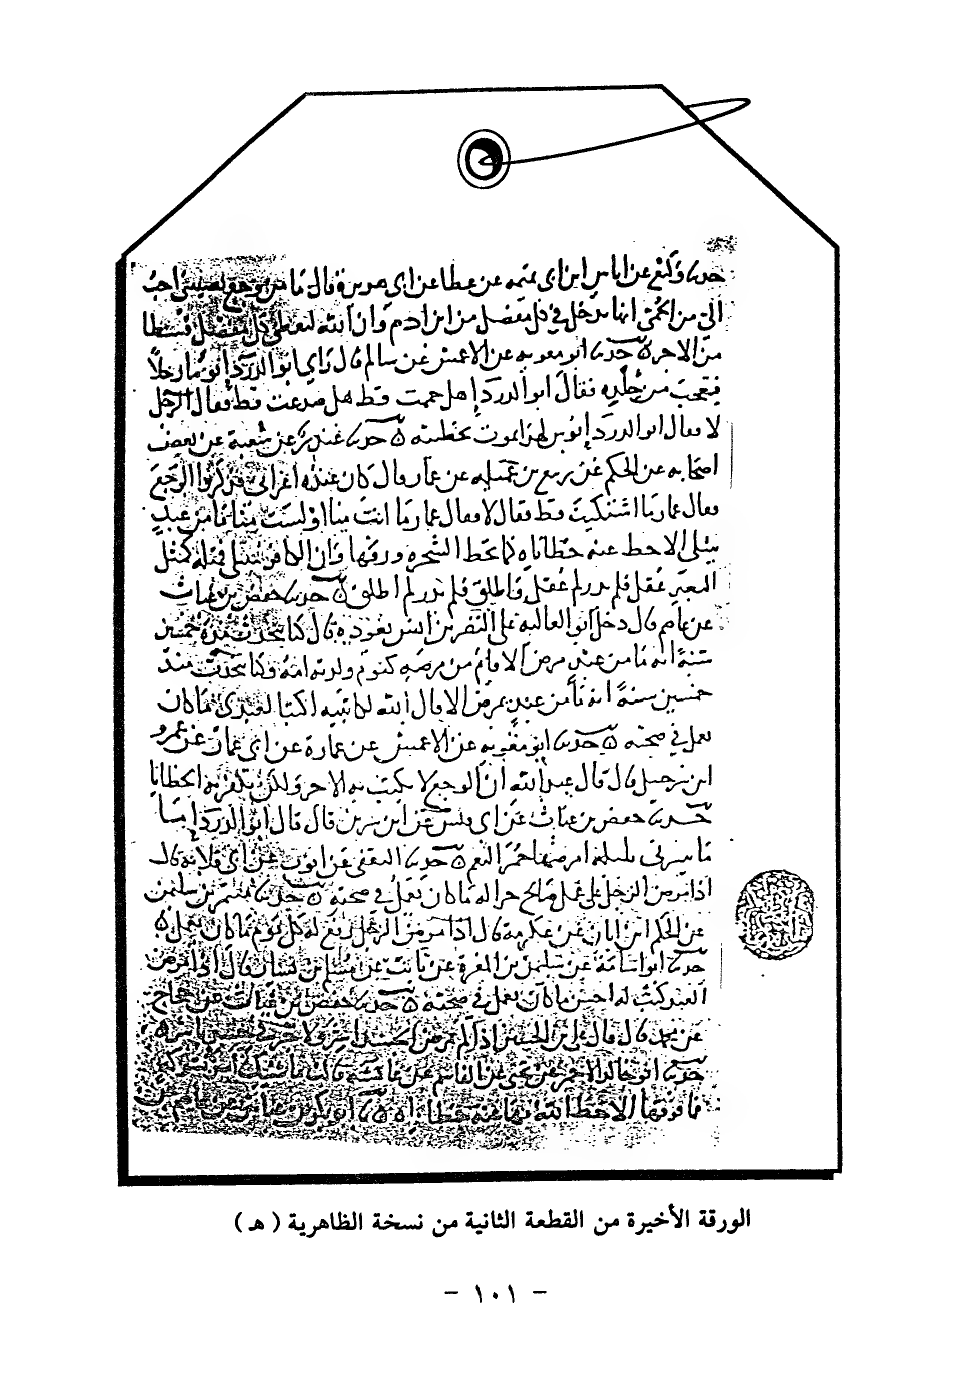 حدثنا وكيع عن اياس ابن ابي تميمه عن عطا عن ابي هريرة قال ما من وجع يصيبني احب
الي من الحمى انها تدخل في كل مفصل من ابن ادم وان الله ليعطي كل مفصل قسطا
من الاجر حدثنا ابو معويه عن الاعمش عن سالم قال راي ابو الدرداء يوما رجلا
فتعجب من جلده فقال ابو الدرداء هل حممت قط هل صدعت قط فقال الرجل
لا فقال ابو الدرداء بوس لهذا يموت بخطيته حدثنا غندر عن شعبة عن بعض
اصحابه عن الحكم عن ربيع بن عميله عن عمار قال كان عنده اعرابي فذكروا الوجع
فقال عمار ما اشتكيت قط فقال لا فقال عمار ما انت منا او لست منا ما من عبد
يبتلى الا حط عنه خطاياه كما تحط الشجره ورقها وان الكافر يبتلى فمثله كمثل
البعير عقل فلم يدر لم عقل فاطلق فلم يدر لم اطلق حدثنا حفص بن غياث
عن عاصم قال دخل ابو العاليه على النضر بن انس يعوده قال كنا نتحدث منذ خمسين
سنة انه ما من عبد مرض الا قام من مرضه كيوم ولدته امه وكنا نتحدث منذ
خمسين سنة انه ما من عبد يمرض الا قال الله لكاتبيه اكتبا لعبدي ما كان
يعمل في صحته حدثنا ابو معويه عن الاعمش عن عمارة عن ابي عمار عن عمرو
ابن شرحبيل قال قال عبد الله ان الوجع لا يكتب به الاجر ولكن يكفر به الخطايا
حدثنا حفص بن غياث عن عن ابن سيرين قال قال ابو الدرداء
ما يسرني بليلة امرضها حمر النعم حدثنا الثقفي عن ايوب عن ابي قلابة قال
اذا مرض الرجل على عمل صالح جرا له ما كان يعمل في صحته حدثنا معتمر بن سليمن
عن الحكم ابن ابان عن عكرمة قال اذا مرض الرجل رفع له كل يوم ما كان يعمل
حدثنا ابو اسامة عن سليمن بن المغيرة عن ثابت عن مسلم بن يسار قال اذا مرض
العبد كتب له احسن ما كان يعمل في صحته حدثنا حفص بن غياث عن حجاج
عن قال قال علي بن الحسين اذا لم يمرض الجسد اشر ولا خير في جسد ياشر
حدثنا ابو خالد الاحمر عن يحيى عن القاسم عن عائشة قالت ما يشاك امرؤ بشوكة
فما فوقها الا حط الله بها عنه خطاياه ابو بكر بن عياش عن عاصم
الورقة الأخيرة من القطعة الثانية من نسخة الظاهرية ( هـ )
- ١٠١ -